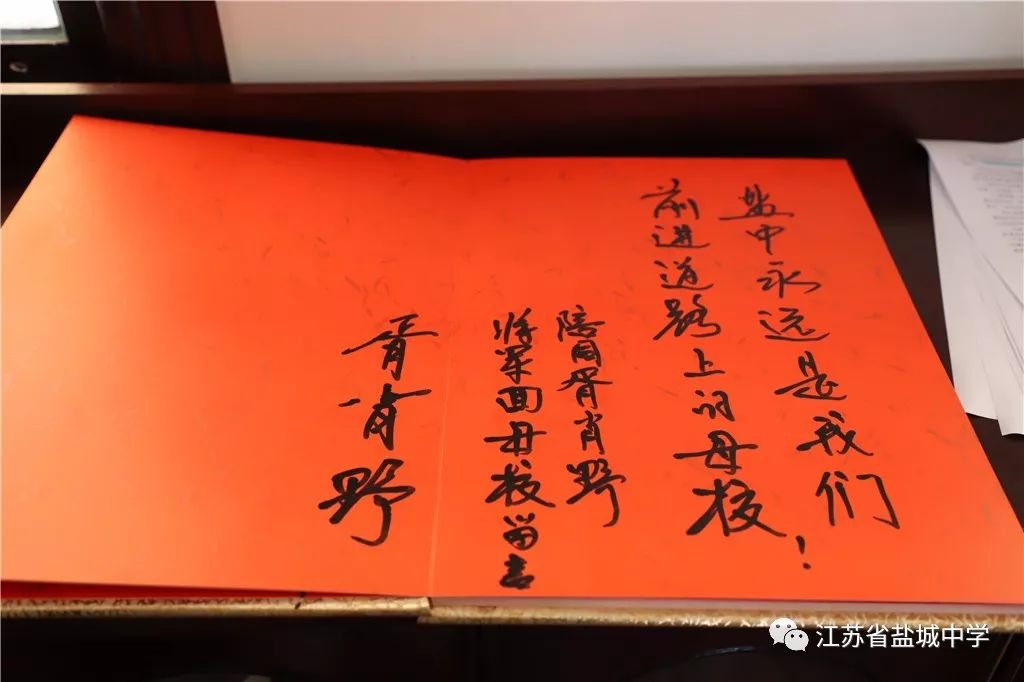 盐中永远是我们
前进道路上的母校！
陪同胥肖野
将军回母校留言
胥肖野
江苏省盐城中学